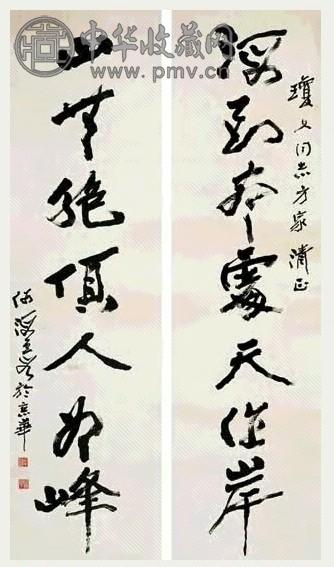 中华收藏网
www.pmv.cn
瓊同志方家清正
海到處天作岸
山絶頂人為峰
何海霞於京華